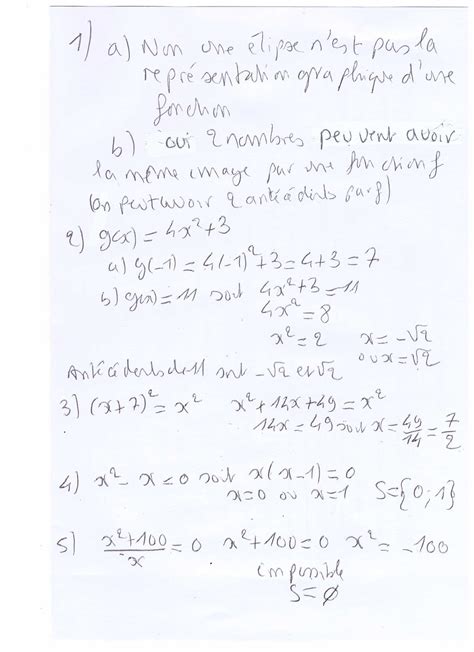 1) a) Non une élipse n'est pas la
représentation graphique d'une
fonction
b) oui 2 nombres peuvent avoir
la même image par une fonction f
(on peut avoir 2 antécédents par f)
2) g(x) = 4x²+3
a) g(-1) = 4(-1)²+3 = 4+3 = 7
b) g(x) = 11 soit 4x²+3 = 11
4x² = 8
x² = 2 x = -√2
ou x = √2
Antécédents de 11 sont -√2 et √2
3) (x+7)² = x² x²+14x+49 = x²
14x = 49 soit x = 49/14 = 7/2
4) x² - x = 0 soit x(x-1) = 0
x=0 ou x=1 S={0;1}
5) (x²+100)/x = 0 x²+100=0 x² = -100
impossible
S=∅